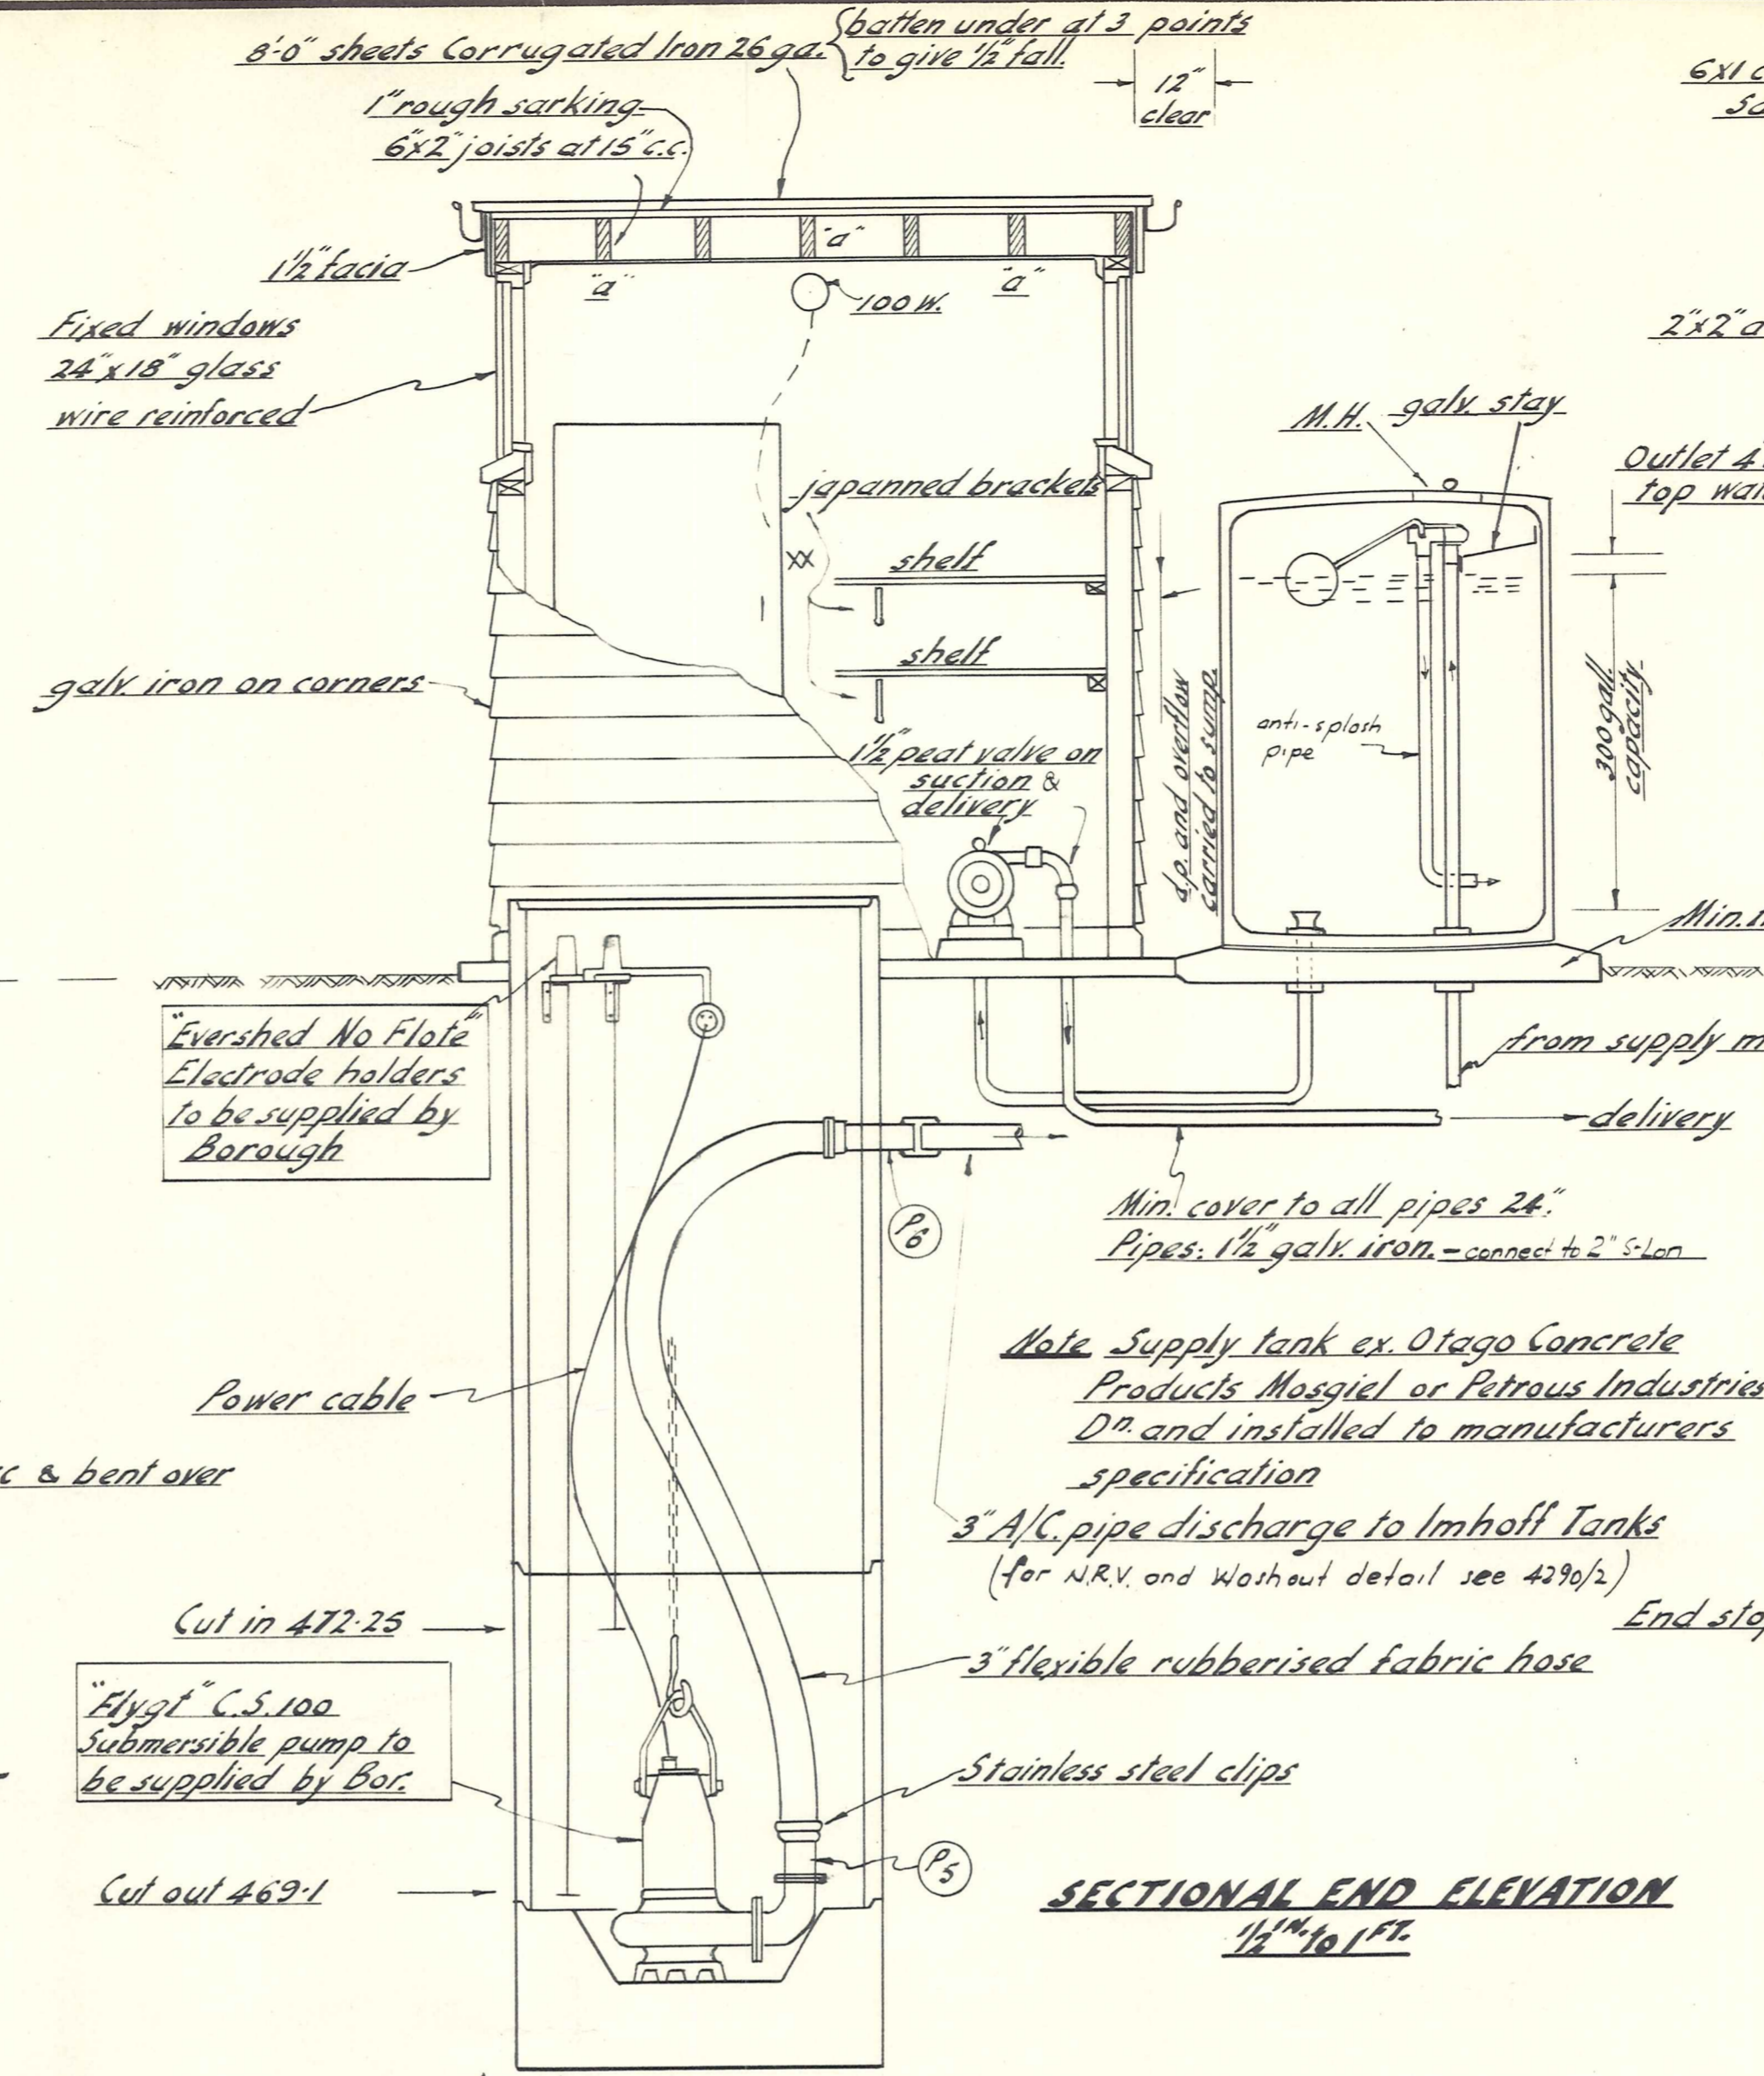 8'-0" sheets Corrugated Iron 26 ga.
batten under at 3 points
to give ½" fall.
12"
clear
1" rough sarking
6"x2" joists at 15" c.c.
6x1
1½" facia
"a"
"a"
"a"
100 W.
Fixed windows
24"x18" glass
wire reinforced
2"x2"
M.H.
galv. stay
Outlet 4
top
japanned brackets
xx
shelf
shelf
galv. iron on corners
1½" peat valve on
suction &
delivery
d.p. and overflow
carried to sump.
anti-splash
pipe
300 gall.
capacity
Min.
"Evershed No Flote"
Electrode holders
to be supplied by
Borough
from supply
delivery
P6
Min. cover to all pipes 24".
Pipes: 1½" galv. iron. - connect to 2" S-Lon
Note Supply tank ex. Otago Concrete
Products Mosgiel or Petrous Industries
Dn. and installed to manufacturers
specification
Power cable
& bent over
3" A/C. pipe discharge to Imhoff Tanks
(for N.R.V. and Washout detail see 4290/2)
Cut in 472·25
End
3" flexible rubberised fabric hose
"Flygt" C.S.100
Submersible pump to
be supplied by Bor.
Stainless steel clips
P5
Cut out 469·1
SECTIONAL END ELEVATION
½ IN. to 1 FT.